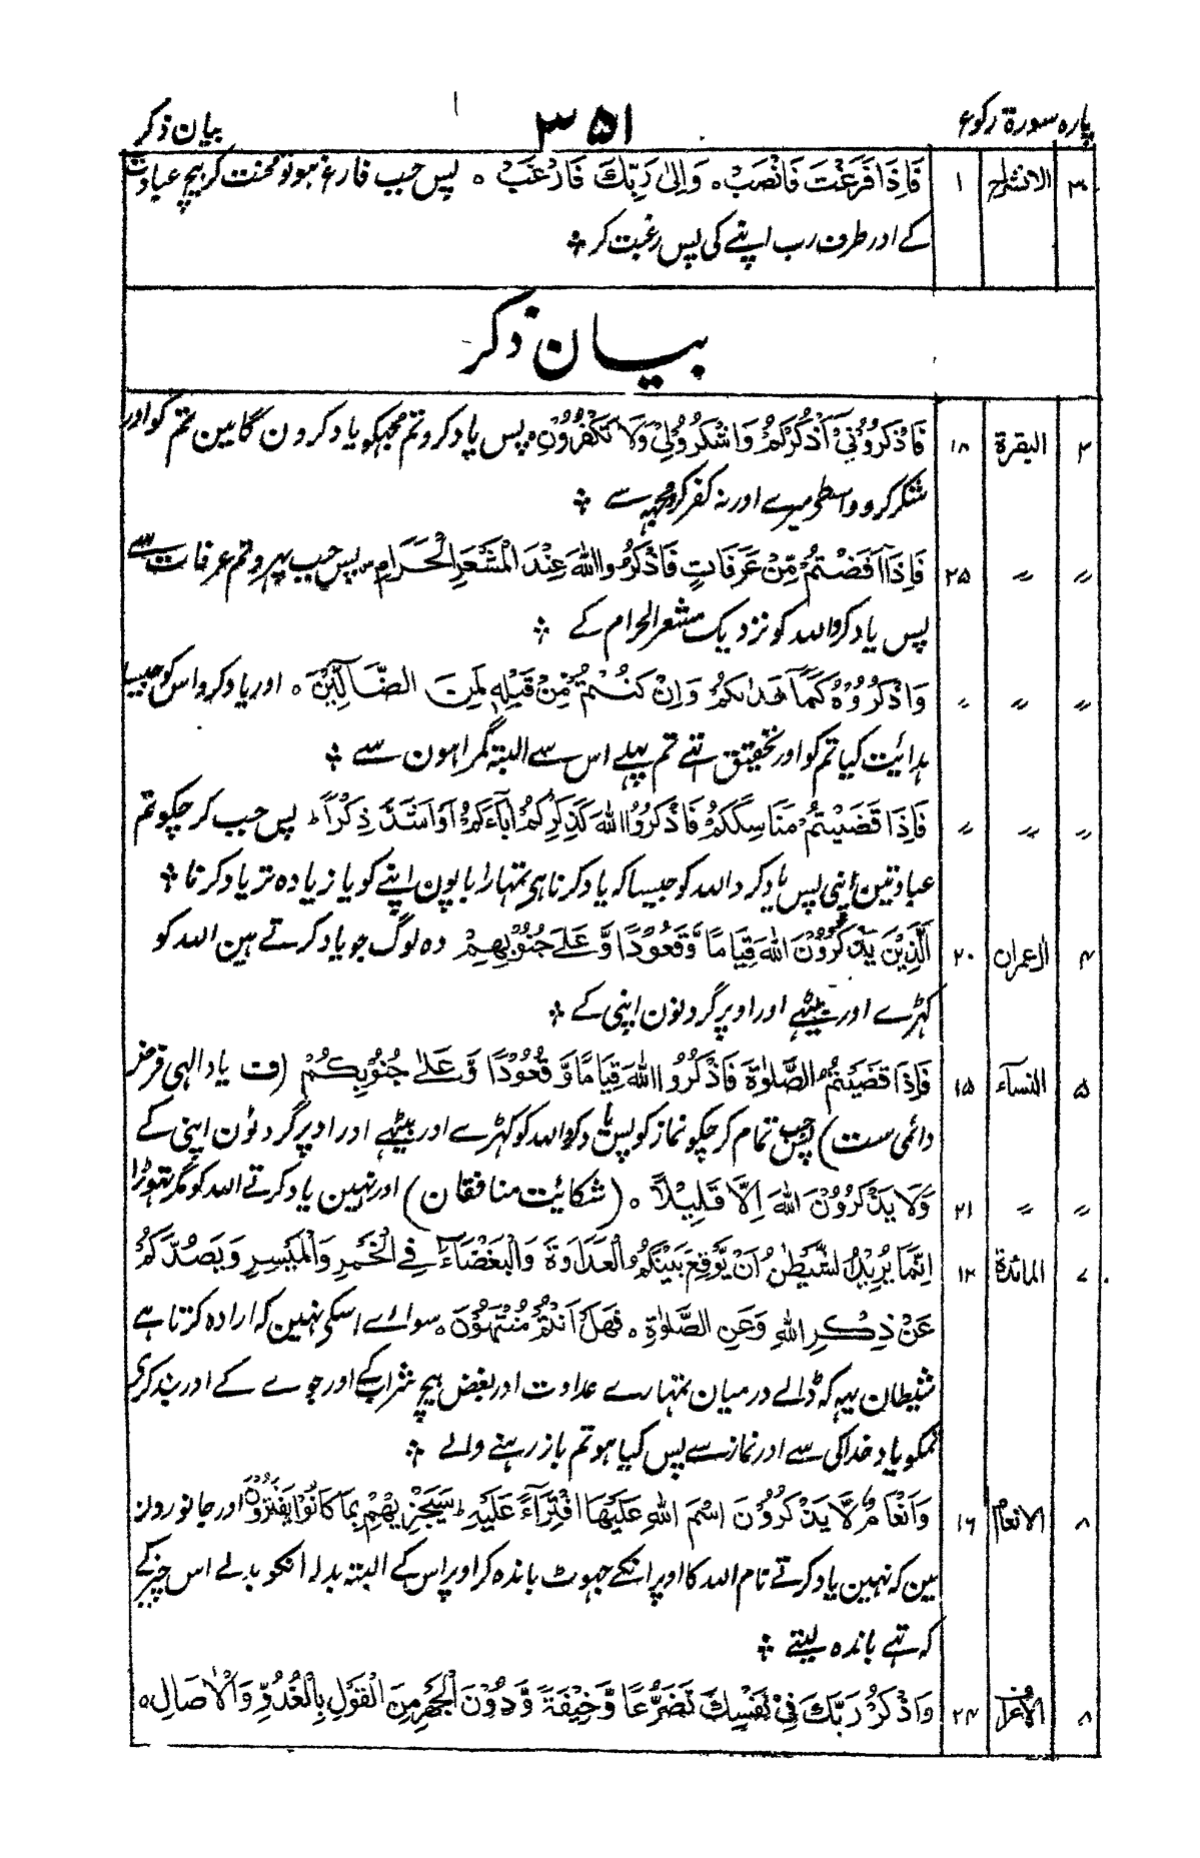 پارہ سورۃ رکوع ۳۵۱ بیان ذکر
۳۰ الانشراح ۱ فَاِذَا فَرَغْتَ فَانْصَبْ ۝ وَاِلٰى رَبِّكَ فَارْغَبْ ۝ پس جب فارغ ہو تو محنت کر بیچ عبادت
کے اور طرف رب اپنے کی پس رغبت کر
بیان ذکر
۲ البقرۃ ۱۸ فَاذْكُرُوْنِیْٓ اَذْكُرْكُمْ وَاشْكُرُوْلِیْ وَلَا تَكْفُرُوْنِ ۝ پس یاد کرو تم مجہکو یاد کرون گا مین تم کو اور
شکر کرو واسطے میرے اور نہ کفر کرو مجہہ سے
〃 〃 ۲۵ فَاِذَآ اَفَضْتُمْ مِّنْ عَرَفَاتٍ فَاذْكُرُوا اللّٰهَ عِنْدَ الْمَشْعَرِ الْحَرَامِ پس جب پہرو تم عرفات سے
پس یاد کرو اللہ کو نزدیک مشعر الحرام کے
〃 〃 〃 وَاذْكُرُوْهُ كَمَا هَدٰىكُمْ وَاِنْ كُنْتُمْ مِّنْ قَبْلِهٖ لَمِنَ الضَّآلِّیْنَ ۝ اور یاد کرو اس کو جیسا
ہدایت کیا تم کو اور تحقیق تہے تم پہلے اس سے البتہ گمراہون سے
〃 〃 〃 فَاِذَا قَضَیْتُمْ مَّنَاسِكَكُمْ فَاذْكُرُوا اللّٰهَ كَذِكْرِكُمْ اٰبَآءَكُمْ اَوْ اَشَدَّ ذِكْرًا ط پس جب کر چکو تم
عبادتین اپنی پس یاد کرو اللہ کو جیسا کہ یاد کرنا ہی تمہارا باپون اپنے کو یا زیادہ تر یاد کرنا
۴ ال عمران ۲۰ الَّذِیْنَ یَذْكُرُوْنَ اللّٰهَ قِیَامًا وَّقُعُوْدًا وَّعَلٰى جُنُوْبِهِمْ وہ لوگ جو یاد کرتے ہین اللہ کو
کہڑے اور بیٹہے اور اوپر گردنون اپنی کے
۵ النساء ۱۵ فَاِذَا قَضَیْتُمُ الصَّلٰوةَ فَاذْكُرُوا اللّٰهَ قِیَامًا وَّقُعُوْدًا وَّعَلٰى جُنُوْبِكُمْ (ف یاد الہی فرض
دائمی ست) پس جب تمام کر چکو نماز کو پس یاد کرو اللہ کو کہڑے اور بیٹہے اور اوپر گردنون اپنی کے
〃 〃 ۲۱ وَلَا یَذْكُرُوْنَ اللّٰهَ اِلَّا قَلِیْلًا ۝ (شکائیت منافقان) اور نہین یاد کرتے اللہ کو مگر تہوڑا
۷ المائدۃ ۱۲ اِنَّمَا یُرِیْدُ الشَّیْطٰنُ اَنْ یُّوْقِعَ بَیْنَكُمُ الْعَدَاوَةَ وَالْبَغْضَآءَ فِی الْخَمْرِ وَالْمَیْسِرِ وَیَصُدَّكُمْ
عَنْ ذِكْرِ اللّٰهِ وَعَنِ الصَّلٰوةِ ۝ فَهَلْ اَنْتُمْ مُّنْتَهُوْنَ ۝ سوائے اسکی نہین کہ ارادہ کرتا ہے
شیطان یہہ کہ ڈالے درمیان تمہارے عداوت اور بغض بیچ شراب کے اور جوے کے اور بند کری
تمکو یاد خدا کی سے اور نماز سے پس کیا ہو تم باز رہنے والے
۸ الانعام ۱۶ وَاَنْعَامٌ لَّا یَذْكُرُوْنَ اسْمَ اللّٰهِ عَلَیْهَا افْتِرَآءً عَلَیْهِ ط سَیَجْزِیْهِمْ بِمَا كَانُوْا یَفْتَرُوْنَ اور جانور
ہین کہ نہین یاد کرتے نام اللہ کا اوپر انکے جہوٹ باندہ کر اوپر اس کے البتہ بدلہ انکو بدلے اس چیز کے
کہ تہے باندہ لیتے
۸ الاعراف ۲۴ وَاذْكُرْ رَّبَّكَ فِیْ نَفْسِكَ تَضَرُّعًا وَّخِیْفَةً وَّدُوْنَ الْجَهْرِ مِنَ الْقَوْلِ بِالْغُدُوِّ وَالْاٰصَالِ ۝